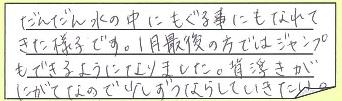 だんだん水の中にもぐる事にもなれて
きた様子です。1月最後の方ではジャンプ
もできるようになりました。背浮きが
にがてなので少しずつならしていきたい。